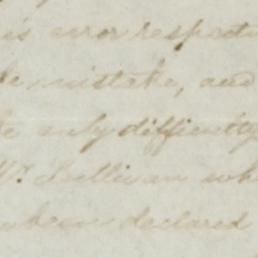 is error respecti
le mistake, and
he only difficulty
Mr. Sullivan wh
when declared